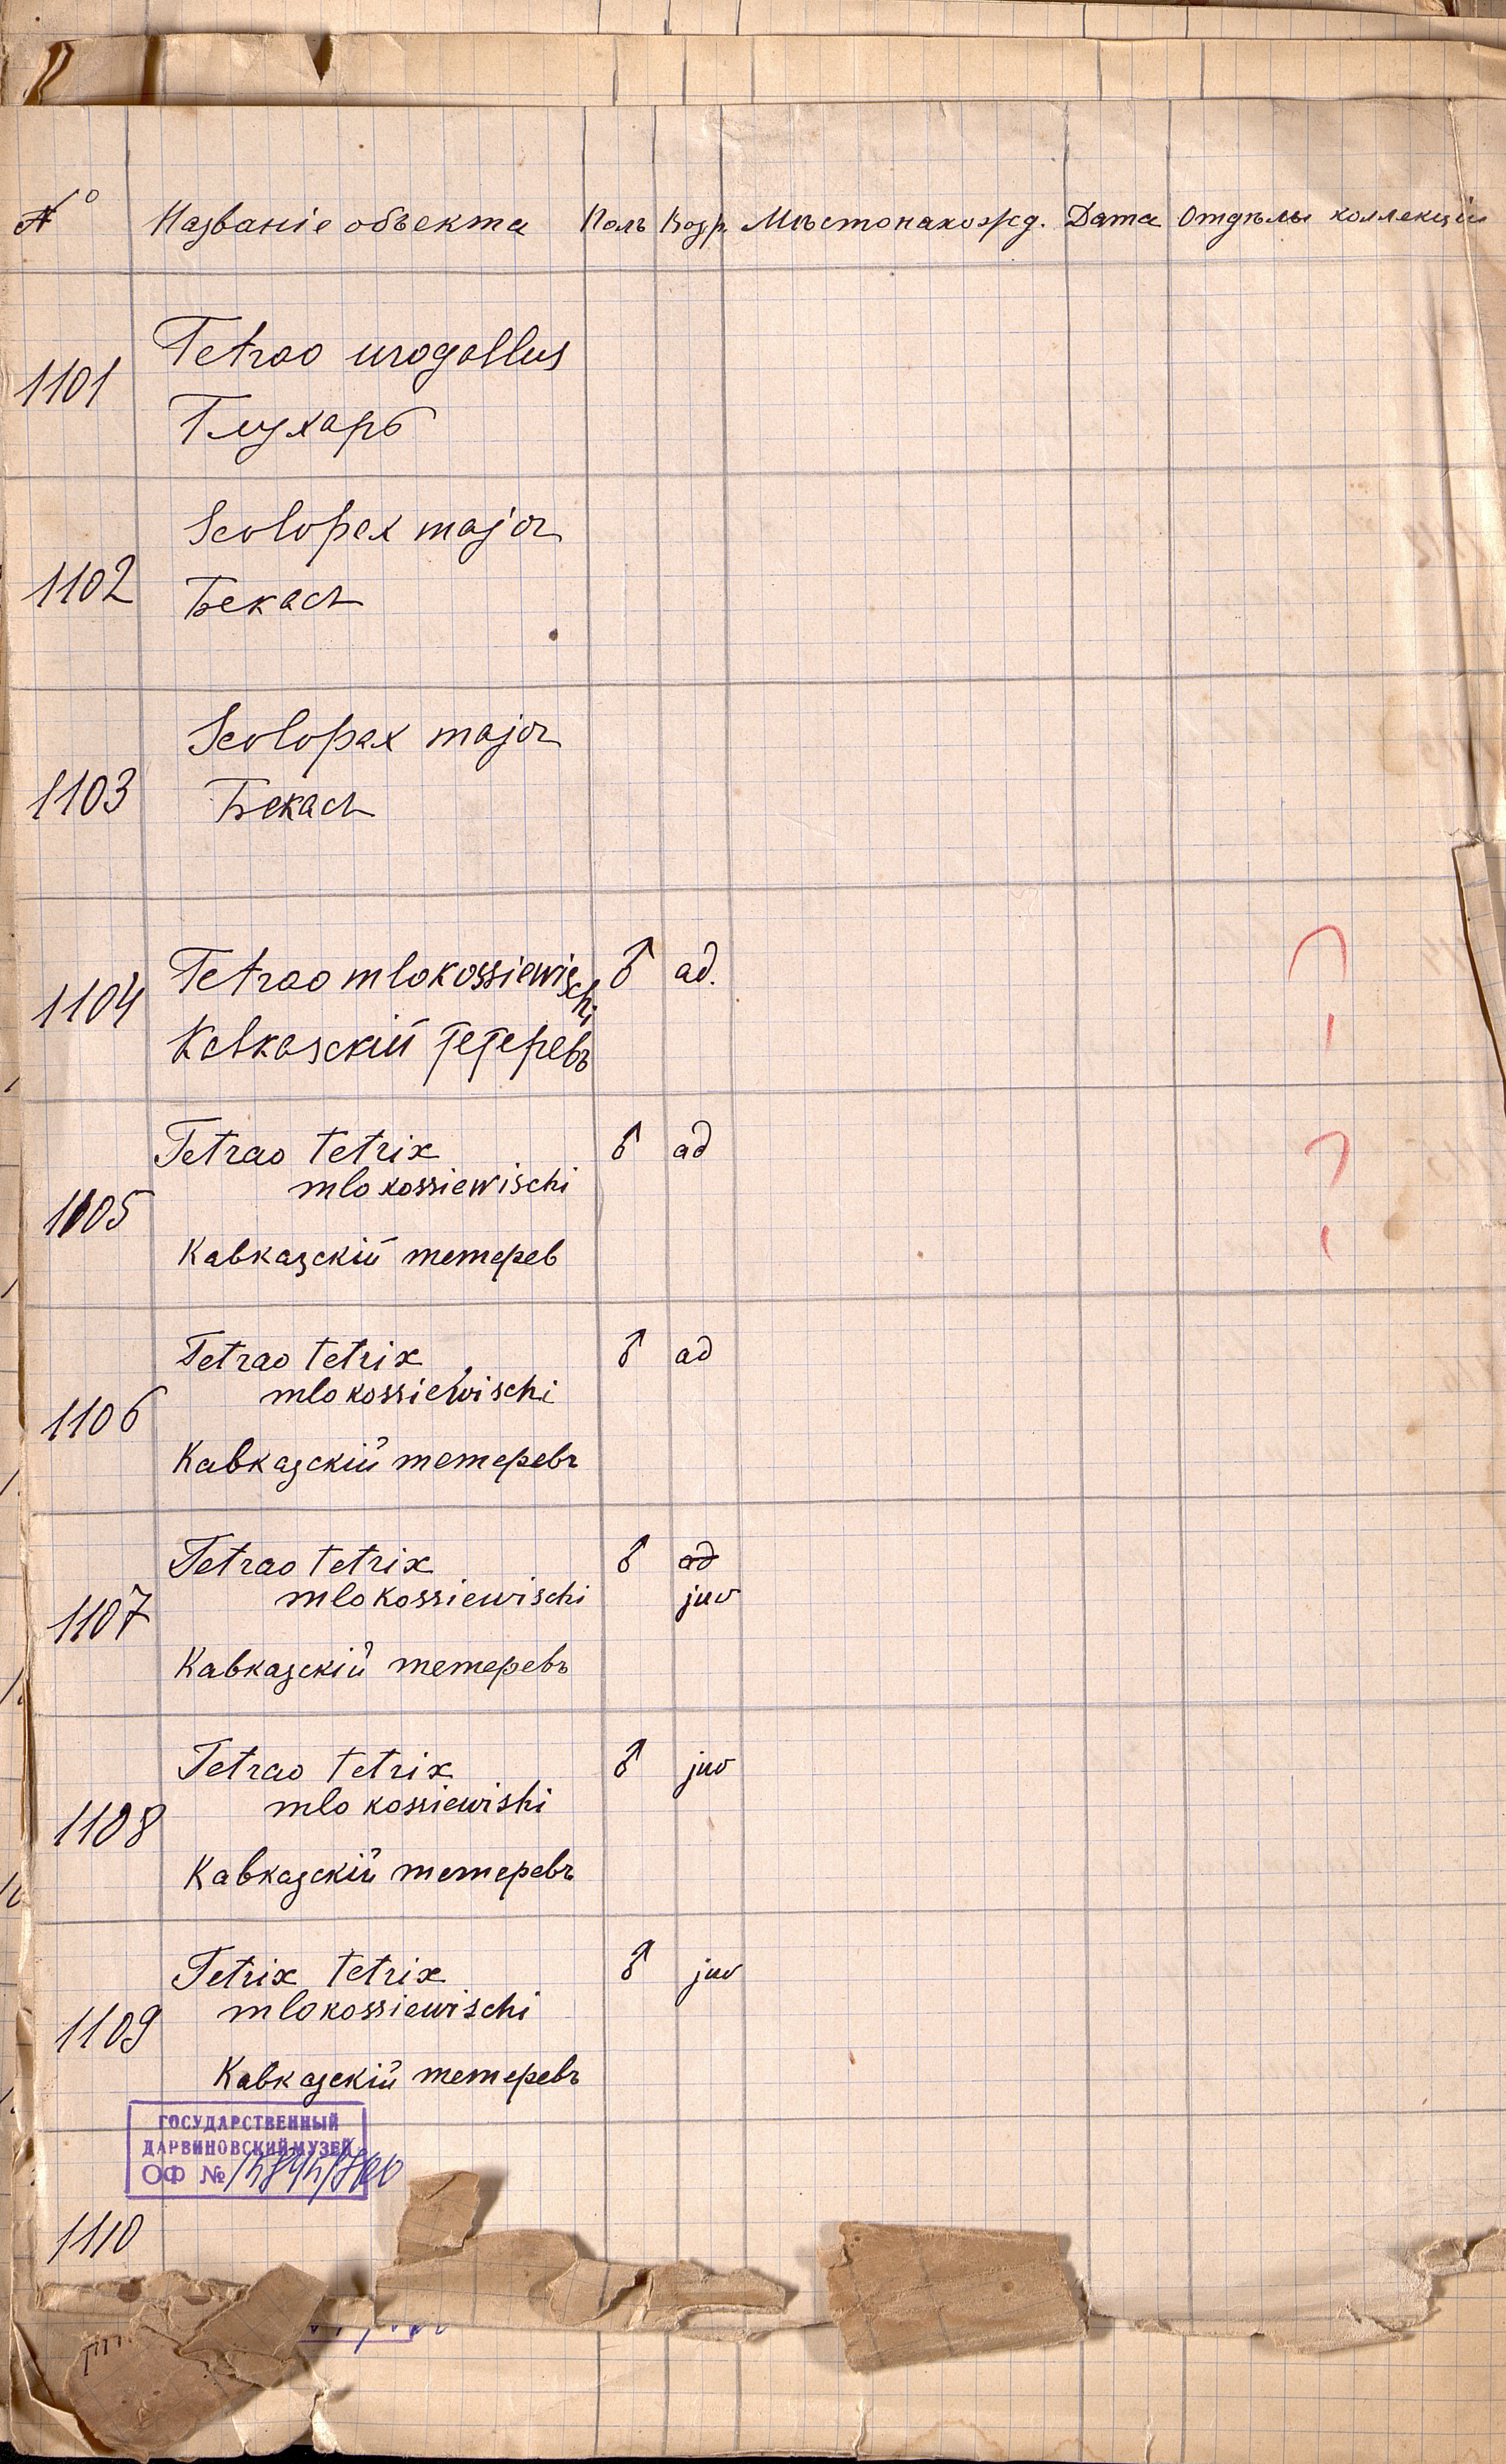 № Названіе объекта Полъ Возр. Мѣстонахожд. Дата Отдѣлы коллекціи
1101 Tetrao urogallus
Глухарь
1102 Scolopax major
Бекасъ
1103 Scolopax major
Бекасъ
1104 Tetrao mlokossiewischi ♂ ad.
Кавказскій тетеревъ
?
1105 Tetrao tetrix ♂ ad
mlokossiewischi
Кавказскій тетерев
?
1106 Tetrao tetrix ♂ ad
mlokossiewischi
Кавказскій тетеревъ
1107 Tetrao tetrix ♂ ad
mlokossiewischi juv
Кавказскій тетеревъ
1108 Tetrao tetrix ♂ juv
mlokossiewishi
Кавказскій тетеревъ
1109 Tetrix tetrix ♂ juv
mlokossiewischi
Кавказскій тетеревъ
ГОСУДАРСТВЕННЫЙ
ДАРВИНОВСКИЙ МУЗЕЙ
ОФ №
1110